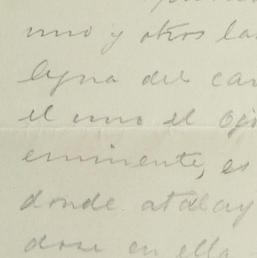 uno y otros la
legua del ca
el uno el Ojo
eminente, es
donde atalay
dose en ella